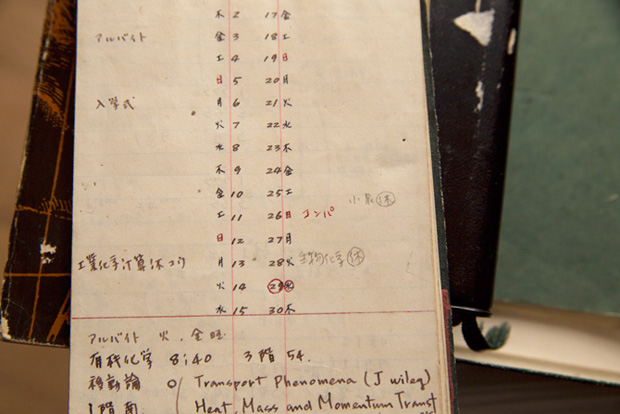 木 2 17 金
アルバイト 金 3 18 土
土 4 19 日
日 5 20 月
入学式 月 6 21 火
火 7 22 水
水 8 23 木
木 9 24 金
金 10 25 土 (休)
土 11 26 日 コンパ
日 12 27 月
工業化学計算休コウ 月 13 28 火 生物化学(休)
火 14 29 水
水 15 30 木
アルバイト 火、金曜
有機化学 8:40 3階 54.
移動論 Transport Phenomena (J wiley)
1階南 Heat, Mass and Momentum Transf